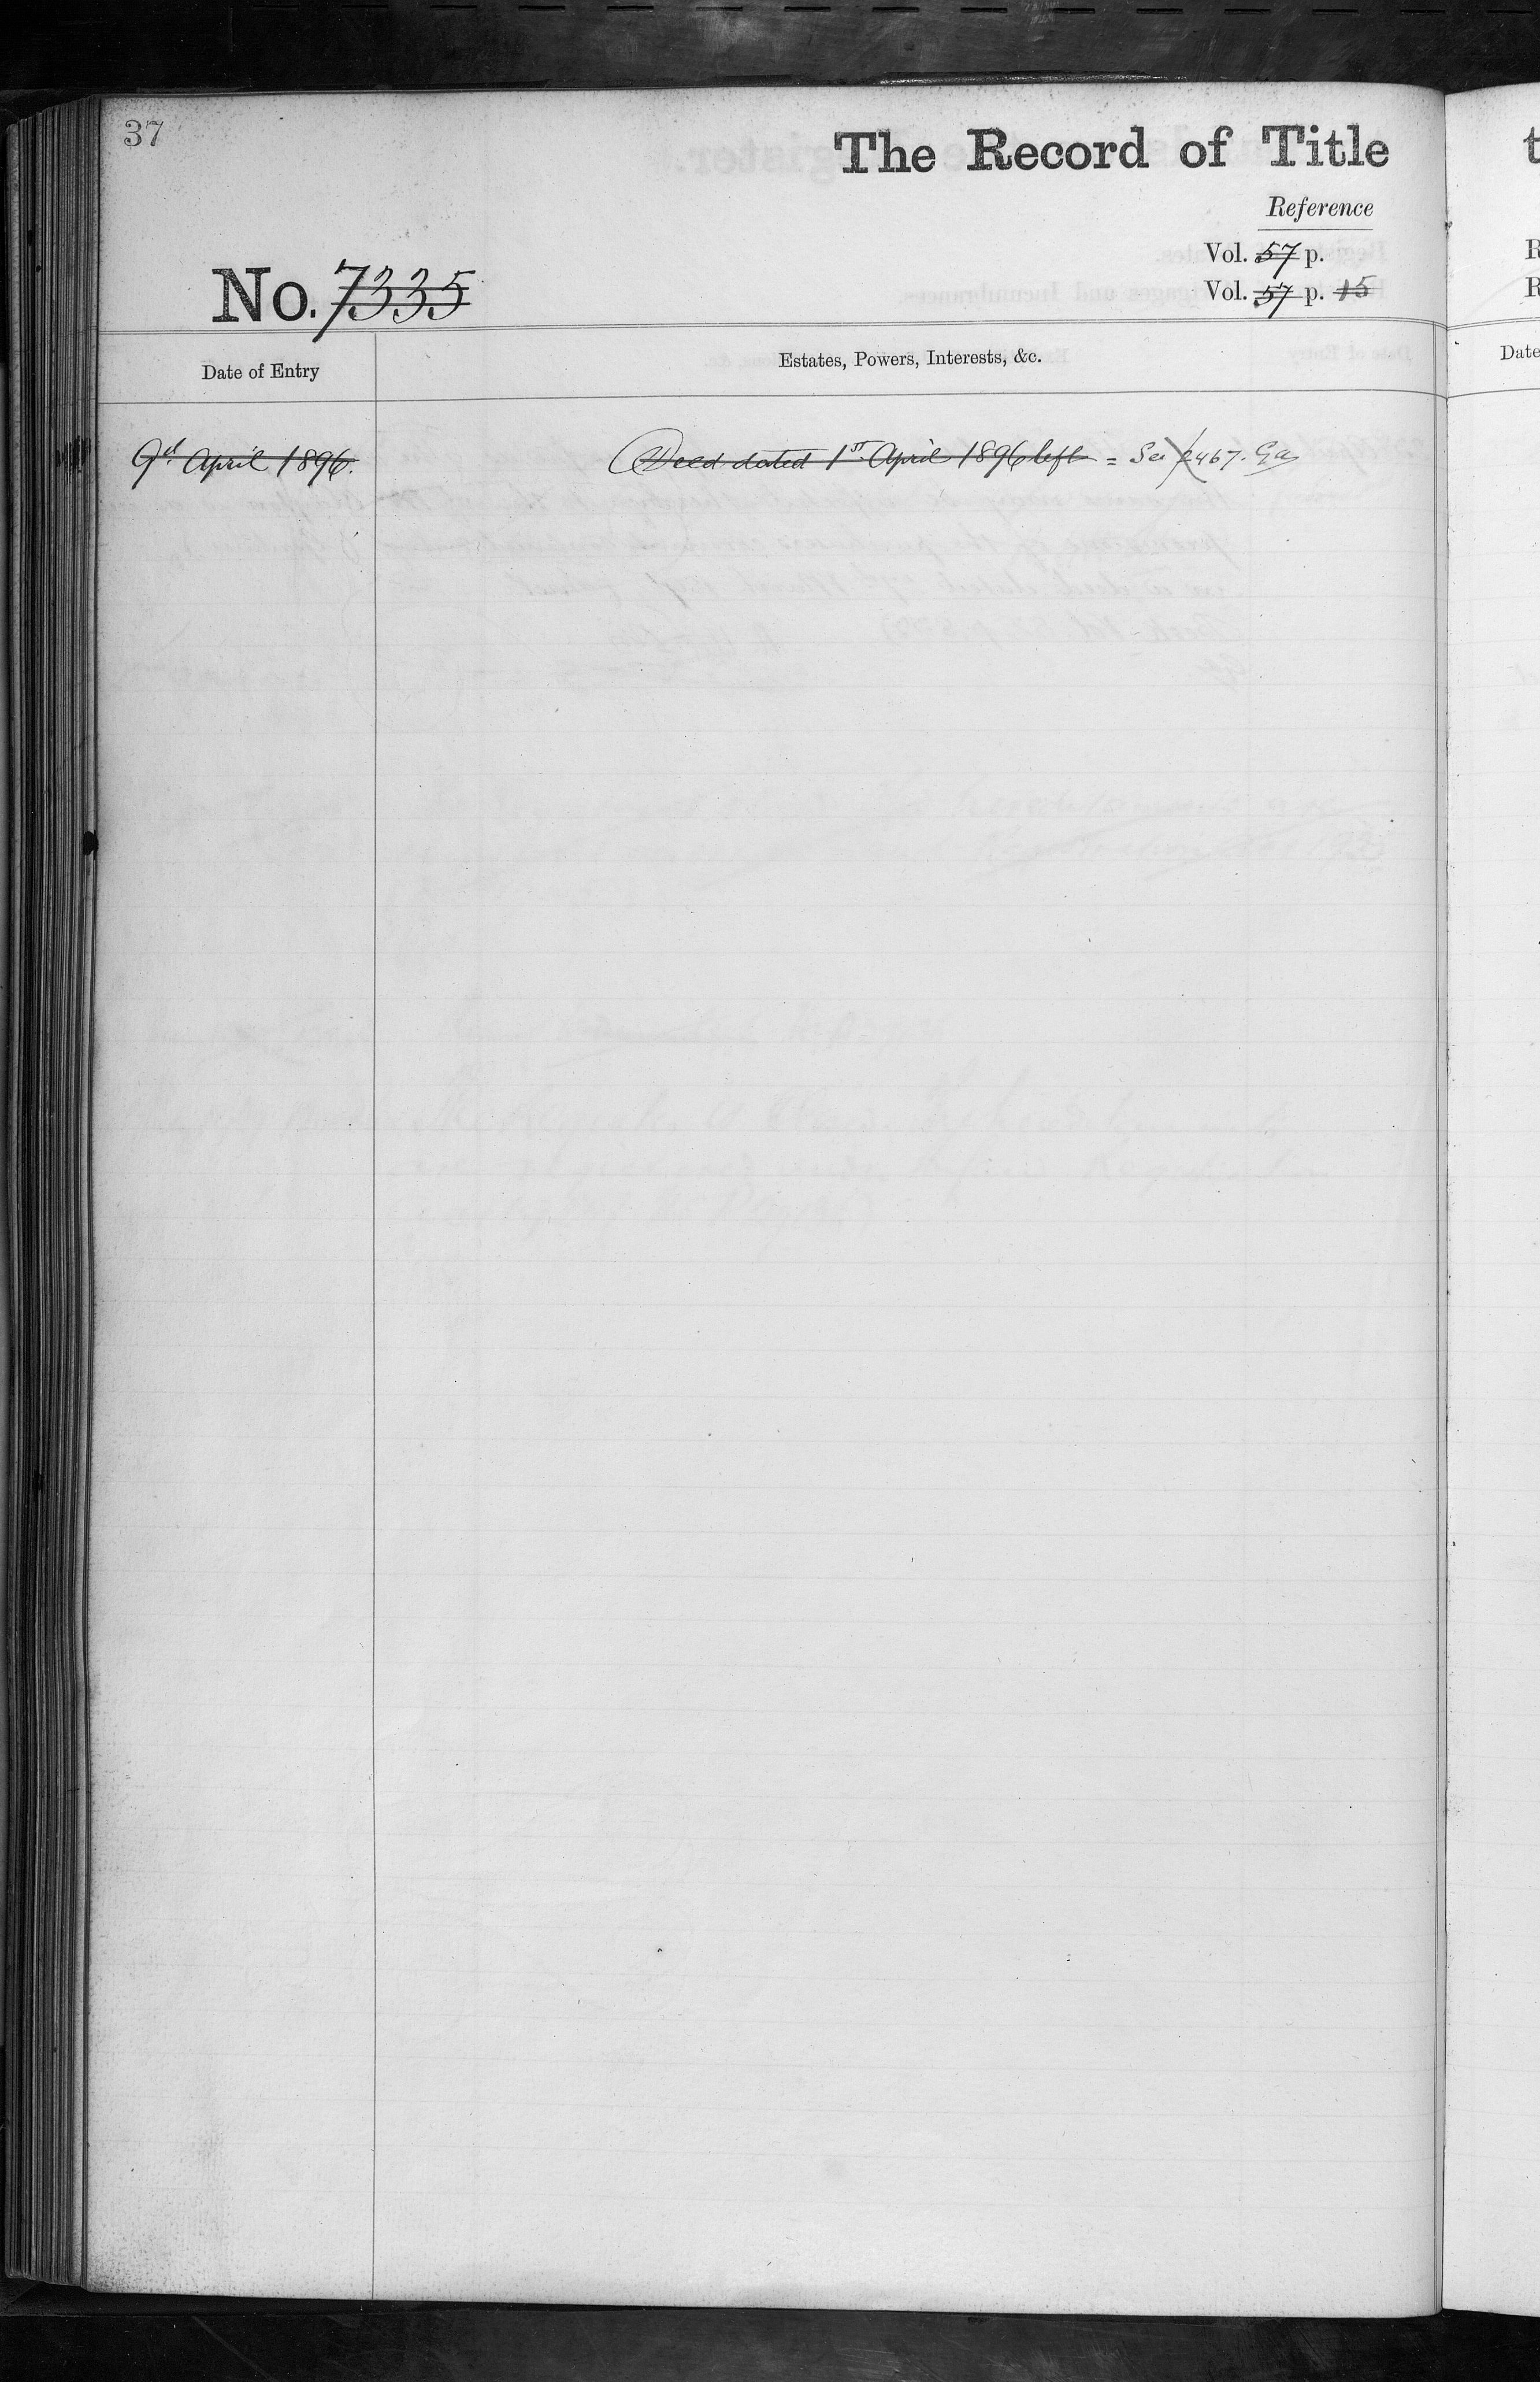 37
The Record of Title
Reference
Vol. 57 p.
No. 7335
Vol. 57 p. 15
Date of Entry
Estates, Powers, Interests, &c.
9th April 1896.
Deed dated 1st April 1896 left = See 2467.
t
R
R
Date